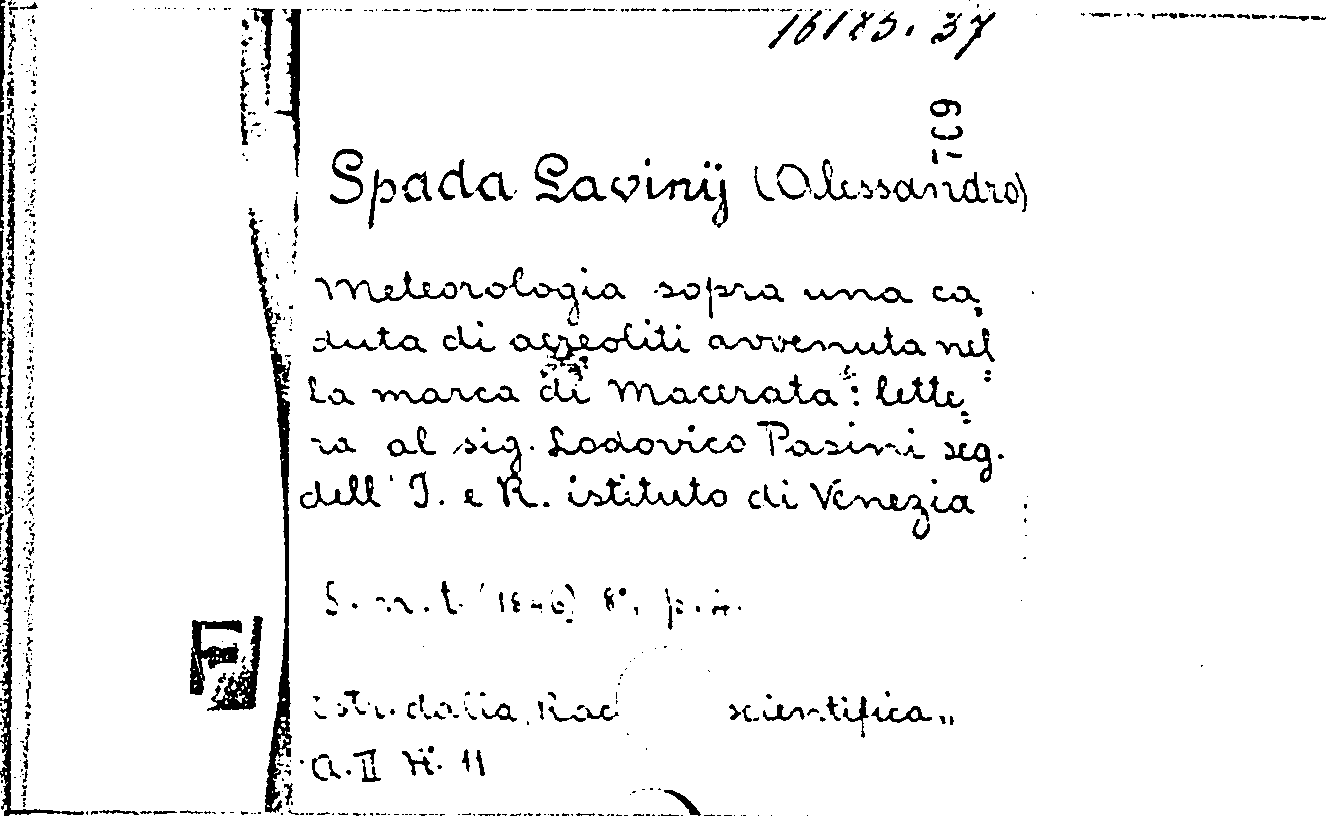 16185.37
Spada Lavinij (Alessandro)
Meteorologia sopra una ca
duta di aereoliti avvenuta nel
la marca di Macerata: lette
ra al sig. Lodovico Pasini seg.
dell' I. e R. istituto di Venezia
S. n. t. (1846) 8°. p. 4.
Estr. dalla, Rac scientifica„
A. II N. 11